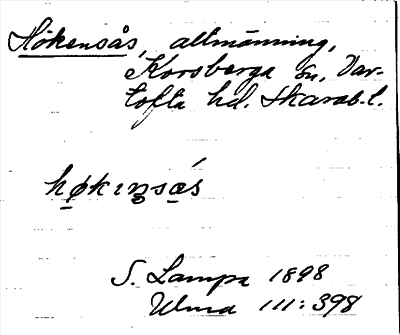 Hökensås, allmänning,
Korsberga sn, Var-
tofta hd. Skarab. l.
hø̲kıŋsa̲s
S. Lampa 1898
Ulma 111:398